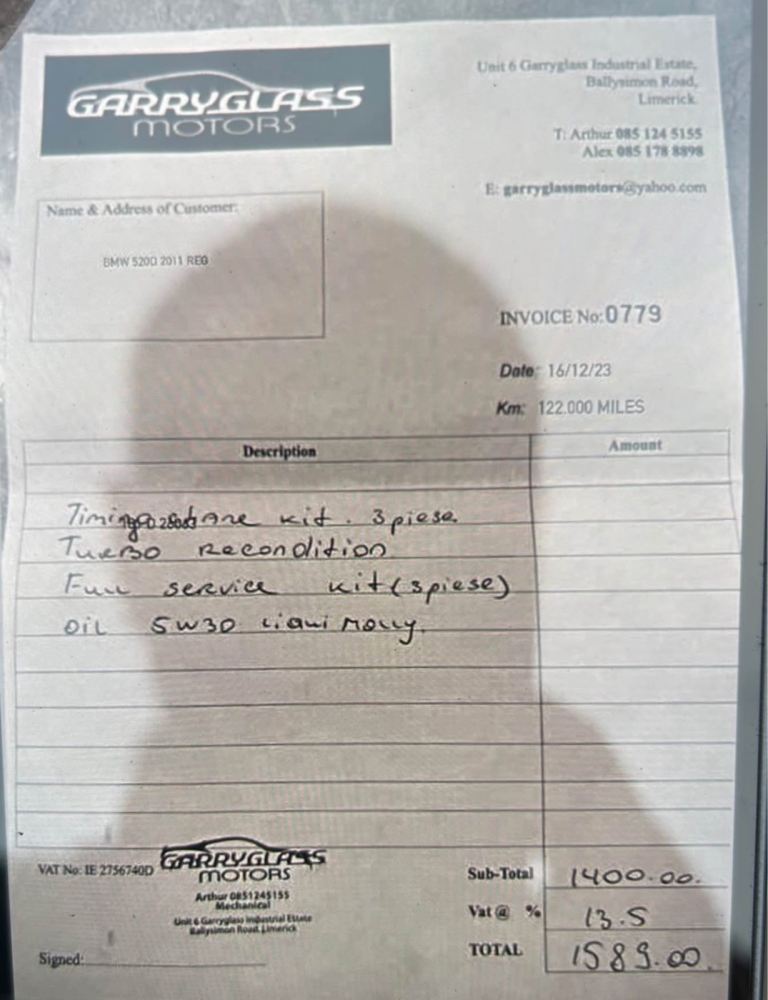 GARRYGLASS
MOTORS
Unit 6 Garryglass Industrial Estate,
Ballysimon Road,
Limerick.
T: Arthur 085 124 5155
Alex 085 178 8898
E: garryglassmotors@yahoo.com
Name & Address of Customer:
BMW 520D 2011 REG
INVOICE No: 0779
Date: 16/12/23
Km: 122.000 MILES
Description Amount
kit. 3 piese.
Turbo Recondition
Full service kit (3 piese)
oil 5W30 Liqui Molly.
VAT No: IE 2756740D
GARRYGLASS
MOTORS
Arthur 0851245155
Mechanical
Unit 6 Garryglass Industrial Estate
Ballysimon Road, Limerick
Signed:
Sub-Total 1400.00.
Vat @ % 13.5
TOTAL 1589.00